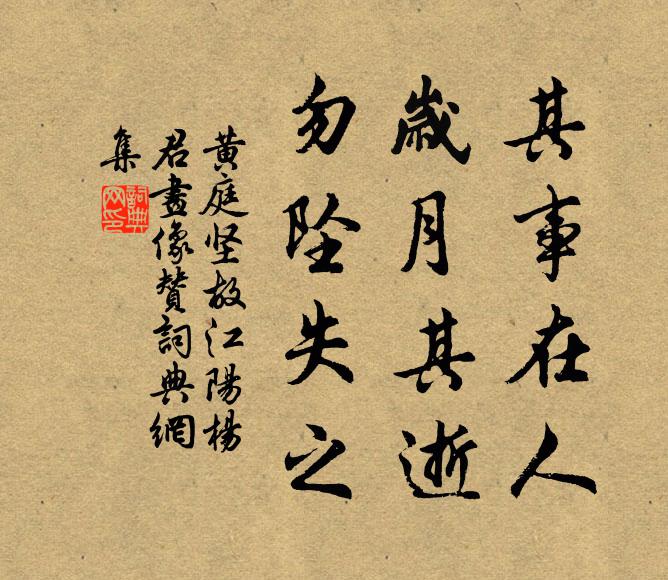 其事在人
歲月其逝
勿坠失之
黄庭坚故江陽楊
君畫像贊詞典網
集
詞典
网印